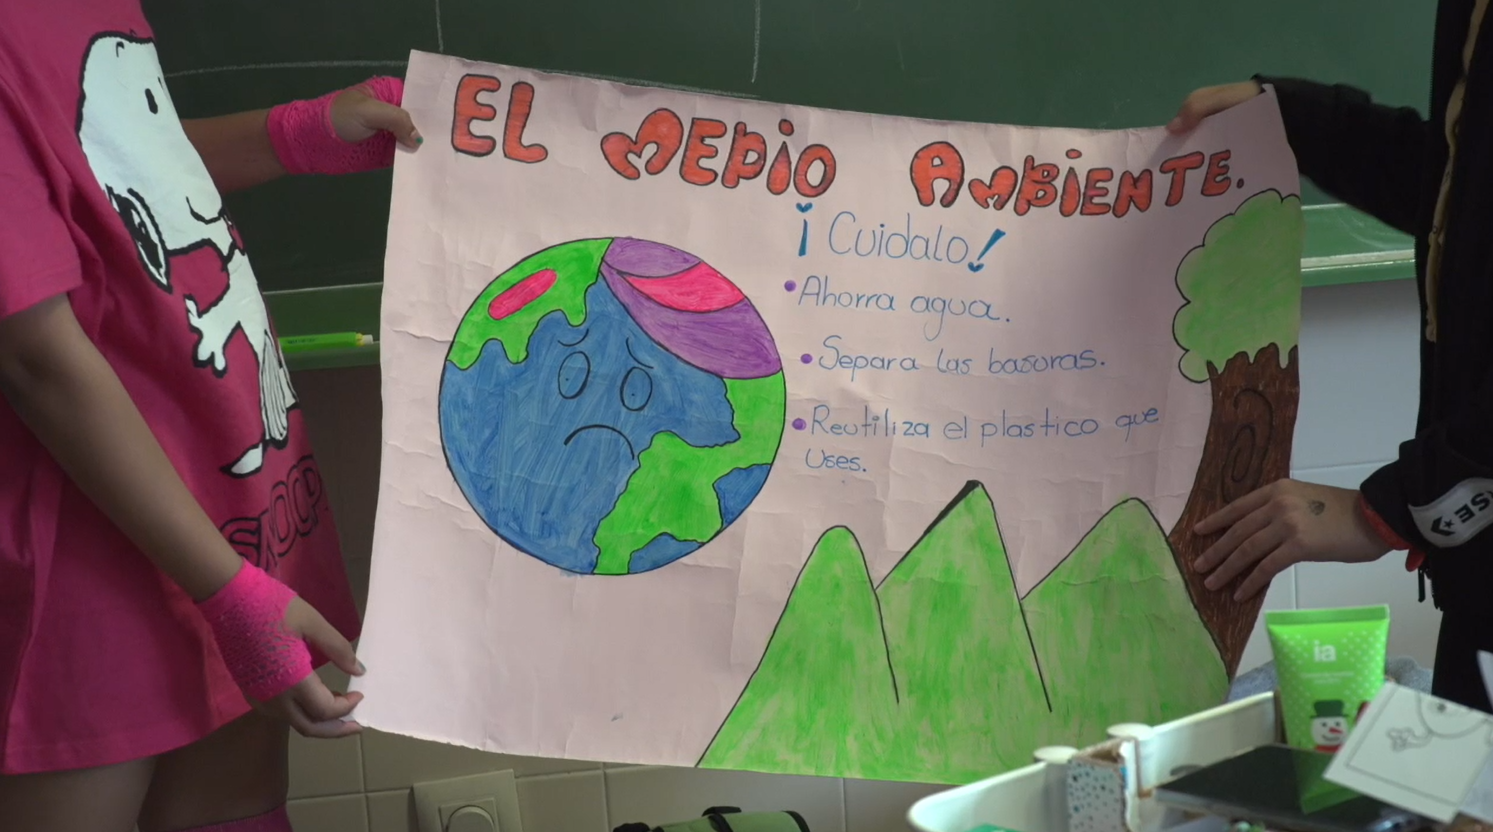 EL MEDIO AMBIENTE.
¡Cuidalo!
• Ahorra agua.
• Separa las basuras.
• Reutiliza el plastico que
Uses.
SNOOP
ia